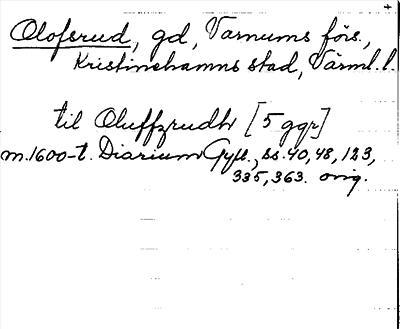 Olofsrud, gd, Varnums förs.,
Kristinehamns stad, Värml. l.
til Oluffzrudh [5 ggr]
m. 1600-t. Diarium Gyll., ss. 40, 48, 123,
335, 363. orig.